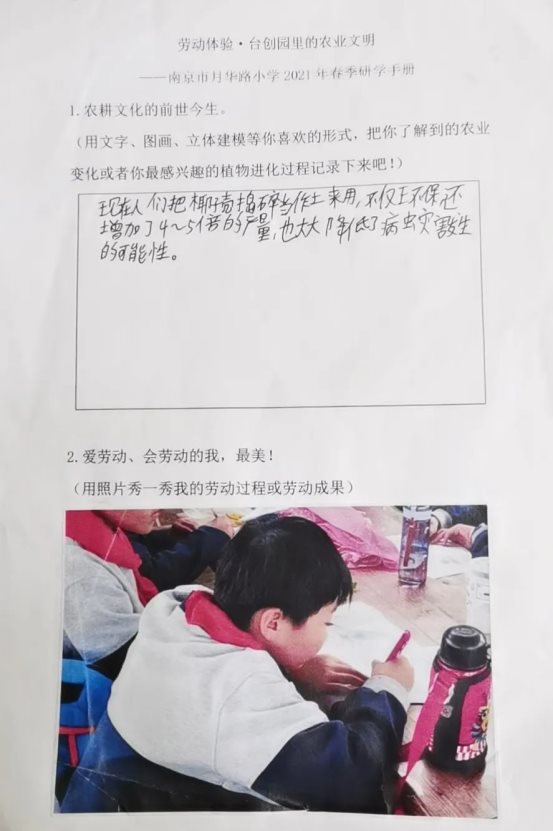 劳动体验·台创园里的农业文明
——南京市月华路小学2021年春季研学手册
1.农耕文化的前世今生。
（用文字、图画、立体建模等你喜欢的形式，把你了解到的农业
变化或者你最感兴趣的植物进化过程记录下来吧！）
现在人们把椰子壳捣碎当作土来用，不仅环保还
增加了4~5倍的产量，也大大降低了病虫灾害发生
的可能性。
2.爱劳动、会劳动的我，最美！
（用照片秀一秀我的劳动过程或劳动成果）